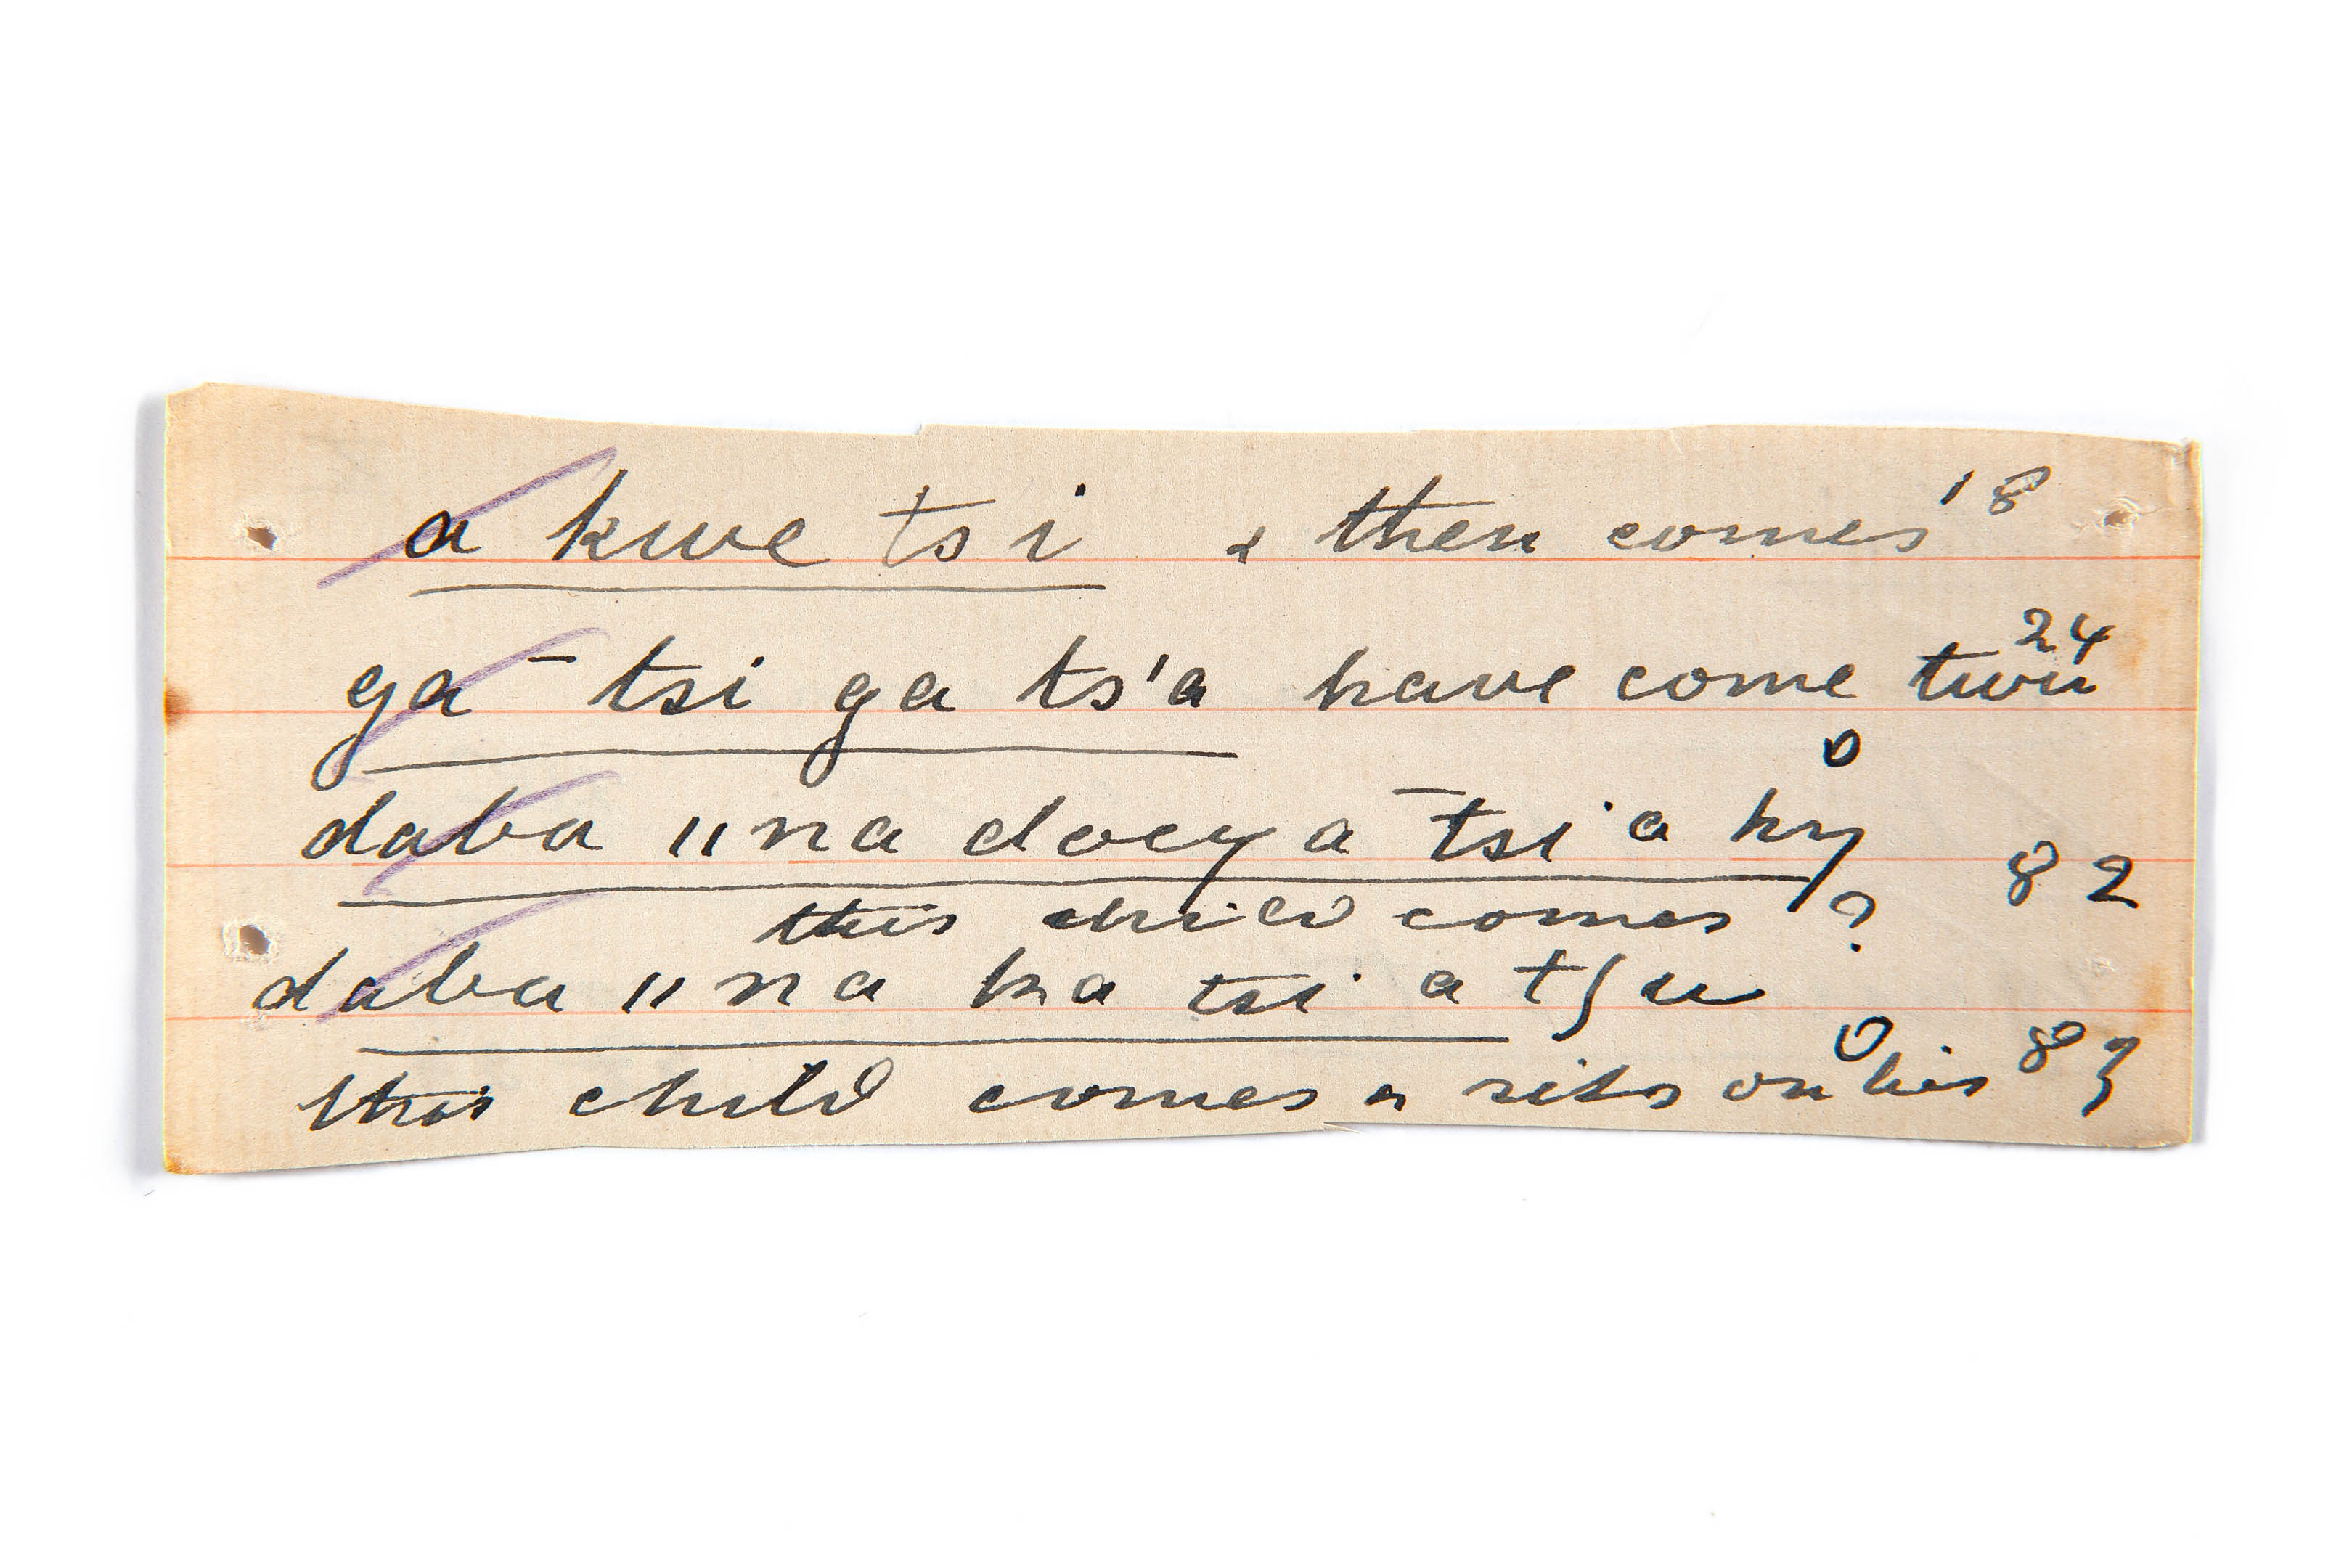 a kwe tsi & then comes 18
ga ‾ tsi ga ts'a have come 24
daba ıı na doeya tsi a ky 82
this child comes ?
daba ıı na ka tsi a tʃu
this child comes & sits on his 83